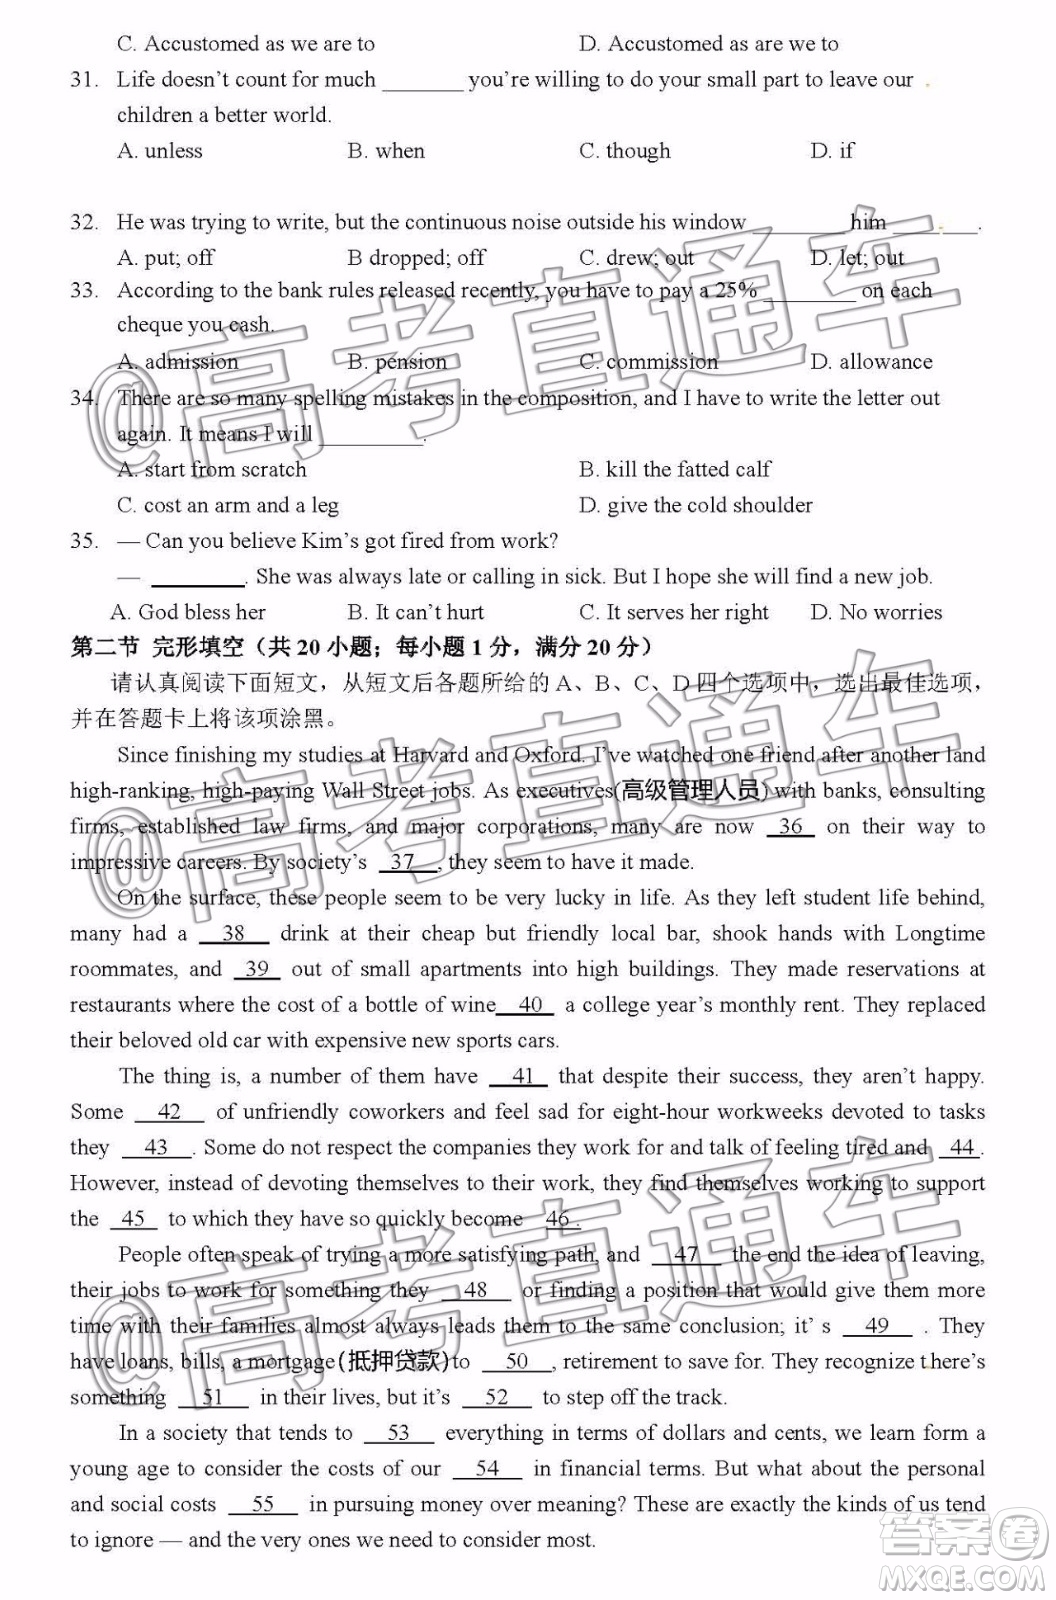 C. Accustomed as we are to D. Accustomed as are we to
31. Life doesn't count for much _______ you're willing to do your small part to leave our
children a better world.
A. unless B. when C. though D. if
32. He was trying to write, but the continuous noise outside his window ________ him ________.
A. put; off B dropped; off C. drew; out D. let; out
33. According to the bank rules released recently, you have to pay a 25% ________ on each
cheque you cash.
A. admission B. pension C. commission D. allowance
34. There are so many spelling mistakes in the composition, and I have to write the letter out
again. It means I will _________.
A. start from scratch B. kill the fatted calf
C. cost an arm and a leg D. give the cold shoulder
35. — Can you believe Kim's got fired from work?
— ________. She was always late or calling in sick. But I hope she will find a new job.
A. God bless her B. It can't hurt C. It serves her right D. No worries
第二节 完形填空（共 20 小题；每小题 1 分，满分 20 分）
请认真阅读下面短文，从短文后各题所给的 A、B、C、D 四个选项中，选出最佳选项，
并在答题卡上将该项涂黑。
Since finishing my studies at Harvard and Oxford. I've watched one friend after another land
high-ranking, high-paying Wall Street jobs. As executives(高级管理人员) with banks, consulting
firms, established law firms, and major corporations, many are now 36 on their way to
impressive careers. By society's 37 , they seem to have it made.
On the surface, these people seem to be very lucky in life. As they left student life behind,
many had a 38 drink at their cheap but friendly local bar, shook hands with Longtime
roommates, and 39 out of small apartments into high buildings. They made reservations at
restaurants where the cost of a bottle of wine 40 a college year's monthly rent. They replaced
their beloved old car with expensive new sports cars.
The thing is, a number of them have 41 that despite their success, they aren't happy.
Some 42 of unfriendly coworkers and feel sad for eight-hour workweeks devoted to tasks
they 43 . Some do not respect the companies they work for and talk of feeling tired and 44 .
However, instead of devoting themselves to their work, they find themselves working to support
the 45 to which they have so quickly become 46 .
People often speak of trying a more satisfying path, and 47 the end the idea of leaving,
their jobs to work for something they 48 or finding a position that would give them more
time with their families almost always leads them to the same conclusion; it' s 49 . They
have loans, bills, a mortgage(抵押贷款)to 50 , retirement to save for. They recognize there's
something 51 in their lives, but it's 52 to step off the track.
In a society that tends to 53 everything in terms of dollars and cents, we learn form a
young age to consider the costs of our 54 in financial terms. But what about the personal
and social costs 55 in pursuing money over meaning? These are exactly the kinds of us tend
to ignore — and the very ones we need to consider most.
@高考直通车
@高考直通车
@高考直通车
答案圈
MXQE.COM